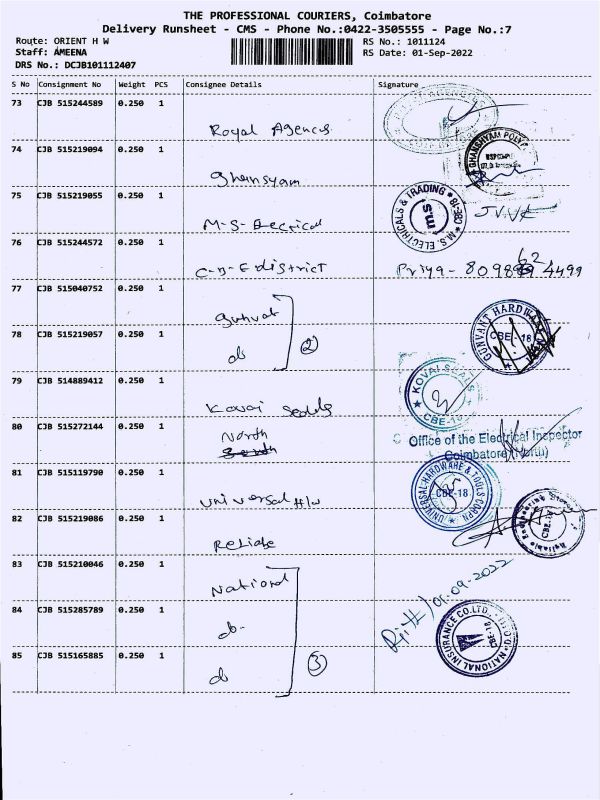 THE PROFESSIONAL COURIERS, Coimbatore
Delivery Runsheet - CMS - Phone No.:0422-3505555 - Page No.:7
Route: ORIENT H W
RS No.: 1011124
Staff: AMEENA
RS Date: 01-Sep-2022
DRS No.: DCJB101112407
S No Consignment No Weight PCS Consignee Details Signature
73 CJB 515244589 0.250 1
Royal Agencies
74 CJB 515219094 0.250 1
Ghansyam
GHANSHYAM POLY
75 CJB 515219055 0.250 1
M-S-Electrical
M.S. ELECTRICALS & TRADING ★ CBE-18 ★
MS
76 CJB 515244572 0.250 1
C-D-E district Priya - 8098 62 4499
77 CJB 515040752 0.250 1
gunvat
GUNVANT HARDWARE
CBE - 18
78 CJB 515219057 0.250 1
do 2
79 CJB 514889412 0.250 1
Kovai Seals
KOVAI SEALS
CBE-18
80 CJB 515272144 0.250 1
North
Office of the Electrical Inspector
Coimbatore (North)
81 CJB 515119790 0.250 1
Universal H/W
UNIVERSAL HARDWARE & TOOLS CORPN
CBE-18
82 CJB 515219086 0.250 1
Reliable
Reliable Engineering Stores
CBE-18
83 CJB 515210046 0.250 1
National
01-09-2022
84 CJB 515285789 0.250 1
do
NATIONAL INSURANCE CO.LTD.
CBE-18
85 CJB 515165885 0.250 1
do 3